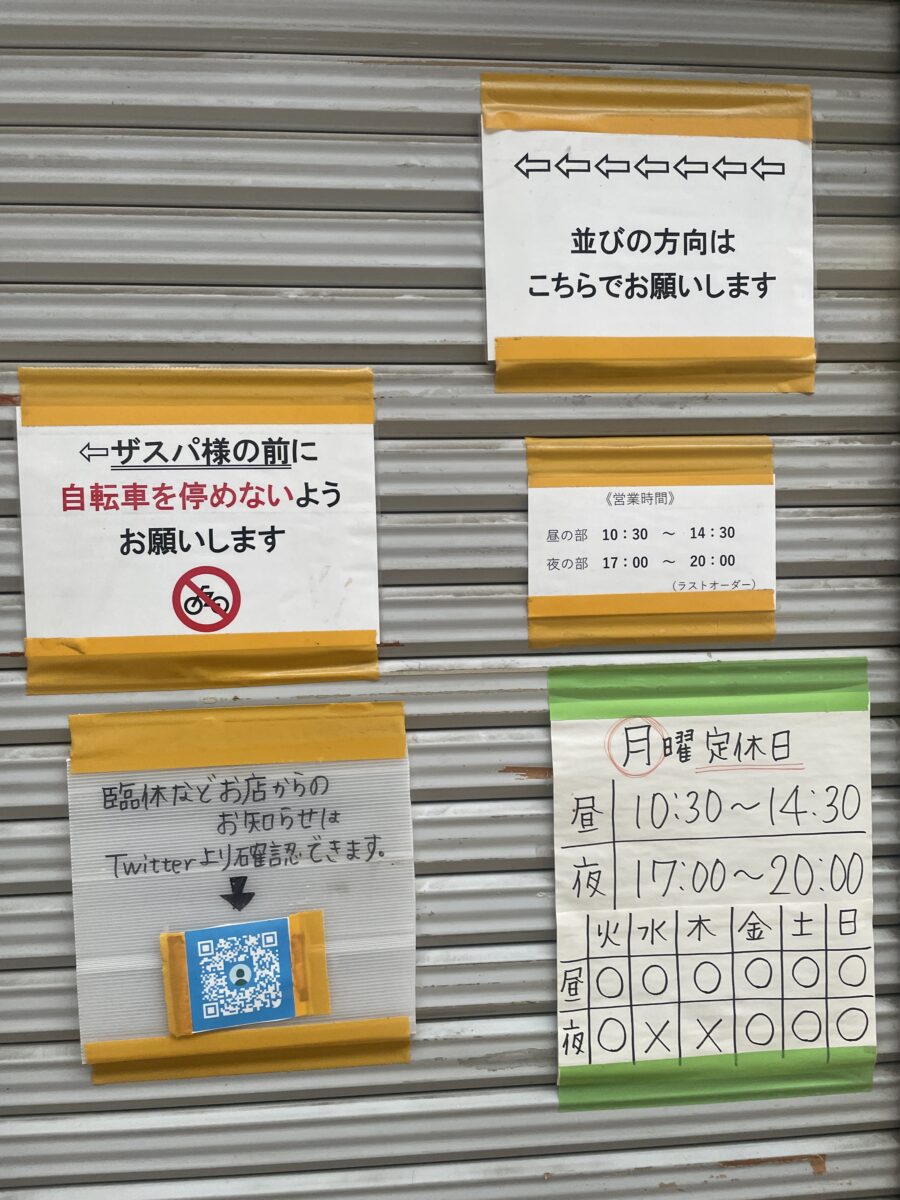 ⇦⇦⇦⇦⇦⇦⇦
並びの方向は
こちらでお願いします
⇦ザスパ様の前に
自転車を停めないよう
お願いします
《営業時間》
昼の部 10：30 ～ 14：30
夜の部 17：00 ～ 20：00
（ラストオーダー）
臨休などお店からの
お知らせは
Twitterより確認できます。
月曜定休日
昼 10:30～14:30
夜 17:00～20:00
火 水 木 金 土 日
昼 ○ ○ ○ ○ ○ ○
夜 ○ × × ○ ○ ○